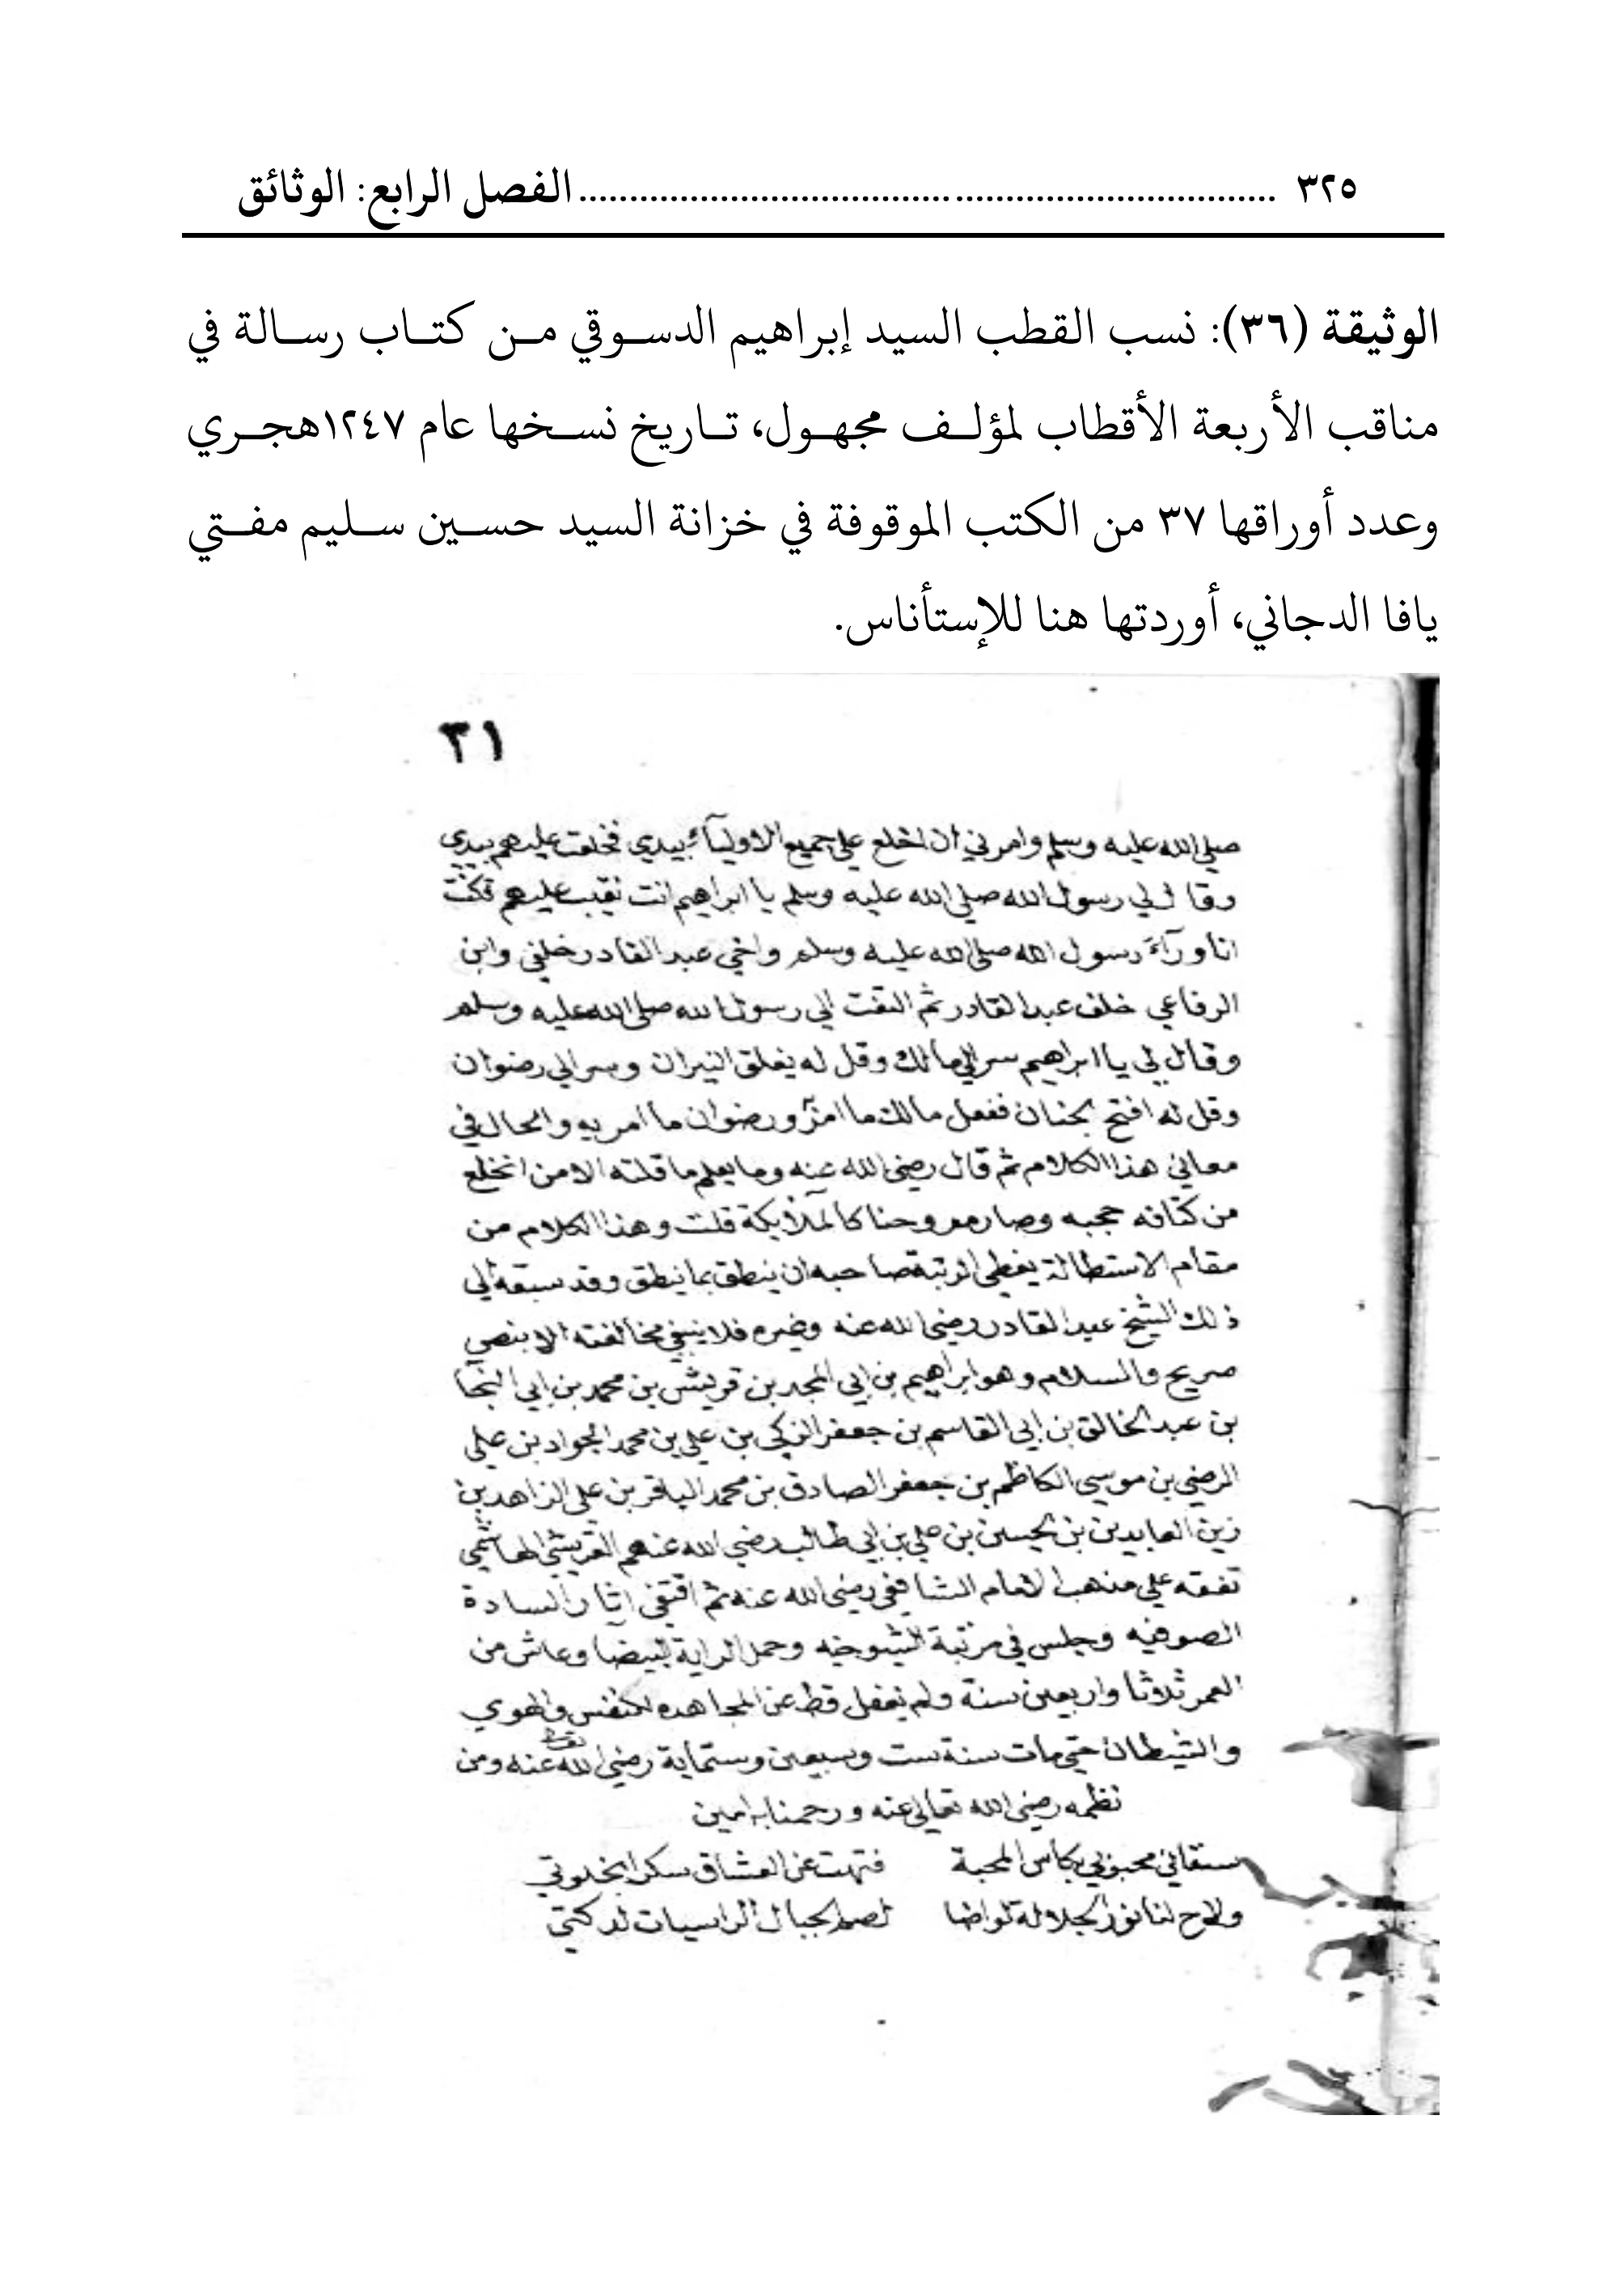 ٣٢٥ ..................................................................... الفصل الرابع: الوثائق
الوثيقة (٣٦): نسب القطب السيد إبراهيم الدسوقي من كتاب رسالة في
مناقب الأربعة الأقطاب لمؤلف مجهول، تاريخ نسخها عام ١٢٤٧هجري
وعدد أوراقها ٣٧ من الكتب الموقوفة في خزانة السيد حسين سليم مفتي
يافا الدجاني، أوردتها هنا للإستأناس.
٣١
صلي الله عليه وسلم وامرني ان اخلع علي جميع الاوليآء بيدي فخلعت عليهم بيدي
وقال لي رسول الله صلي الله عليه وسلم يا ابراهيم انت نقيب عليهم فكنت
انا ورآء رسول الله صلي الله عليه وسلم واخي عبد القادر خلفي وابن
الرفاعي خلف عبد القادر ثم التفت الي رسول الله صلي الله عليه وسلم
وقال لي يا ابراهيم سر الي مالك وقل له يغلق النيران وسر الي رضوان
وقل له افتح الجنان ففعل مالك ما امر ورضوان ما امر به والحال في
معاني هذا الكلام ثم قال رضي الله عنه وما يعلم ما قلته الا من انخلع
من كثافه حجبه وصار مروحنا كالملآئكة قلت وهذا الكلام من
مقام الاستطالة يعطي الرتبة صاحبه ان ينطق بما ينطق وقد سبقه الي
ذلك الشيخ عبد القادر رضي الله عنه وغيره فلا ينبغي مخالفته الا بنص
صريح والسلام وهو ابراهيم بن ابي المجد بن قريش بن محمد بن ابي النجا
بن عبد الخالق بن ابي القاسم بن جعفر الزكي بن علي بن محمد الجواد بن علي
الرضي بن موسي الكاظم بن جعفر الصادق بن محمد الباقر بن علي الزاهد بن
زين العابدين بن الحسين بن علي بن ابي طالب رضي الله عنهم القريشي الهاشمي
تفقه علي مذهب الامام الشافعي رضي الله عنه ثم اقتفي اثار السادة
الصوفيه وجلس في مرتبة الشيوخيه وحمل الراية البيضا وعاش من
العمر ثلاثا واربعين سنة ولم يغفل قط عن المجاهده للنفس والهوي
والشيطان حتي مات سنة ست وسبعين وستماية رضي الله عنه ومن
نظمه رضي الله تعالي عنه ورحمنا به امين
سقاني محبوبي بكاس المحبة فتهت عن العشاق سكرا بخلوتي
ولاح لنا نور الجلالة لو اضا لصم الجبال الراسيات لدكتي